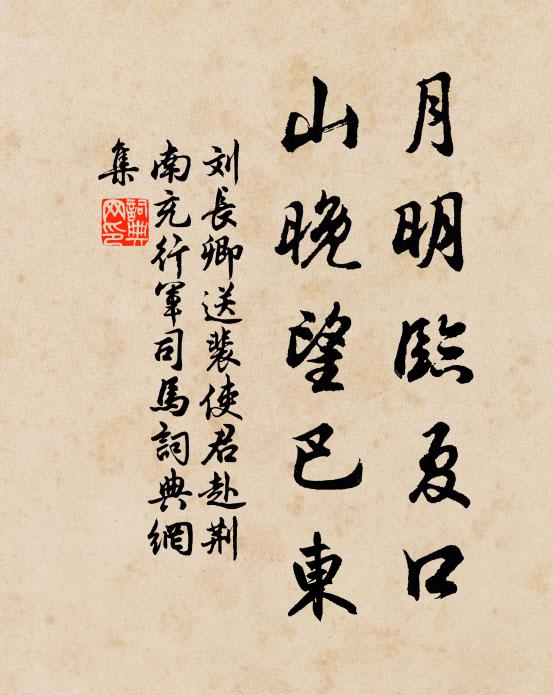 月明臨夏口
山晚望巴東
刘長卿送裴使君赴荆
南充行軍司馬詞典網
集
詞典
网印